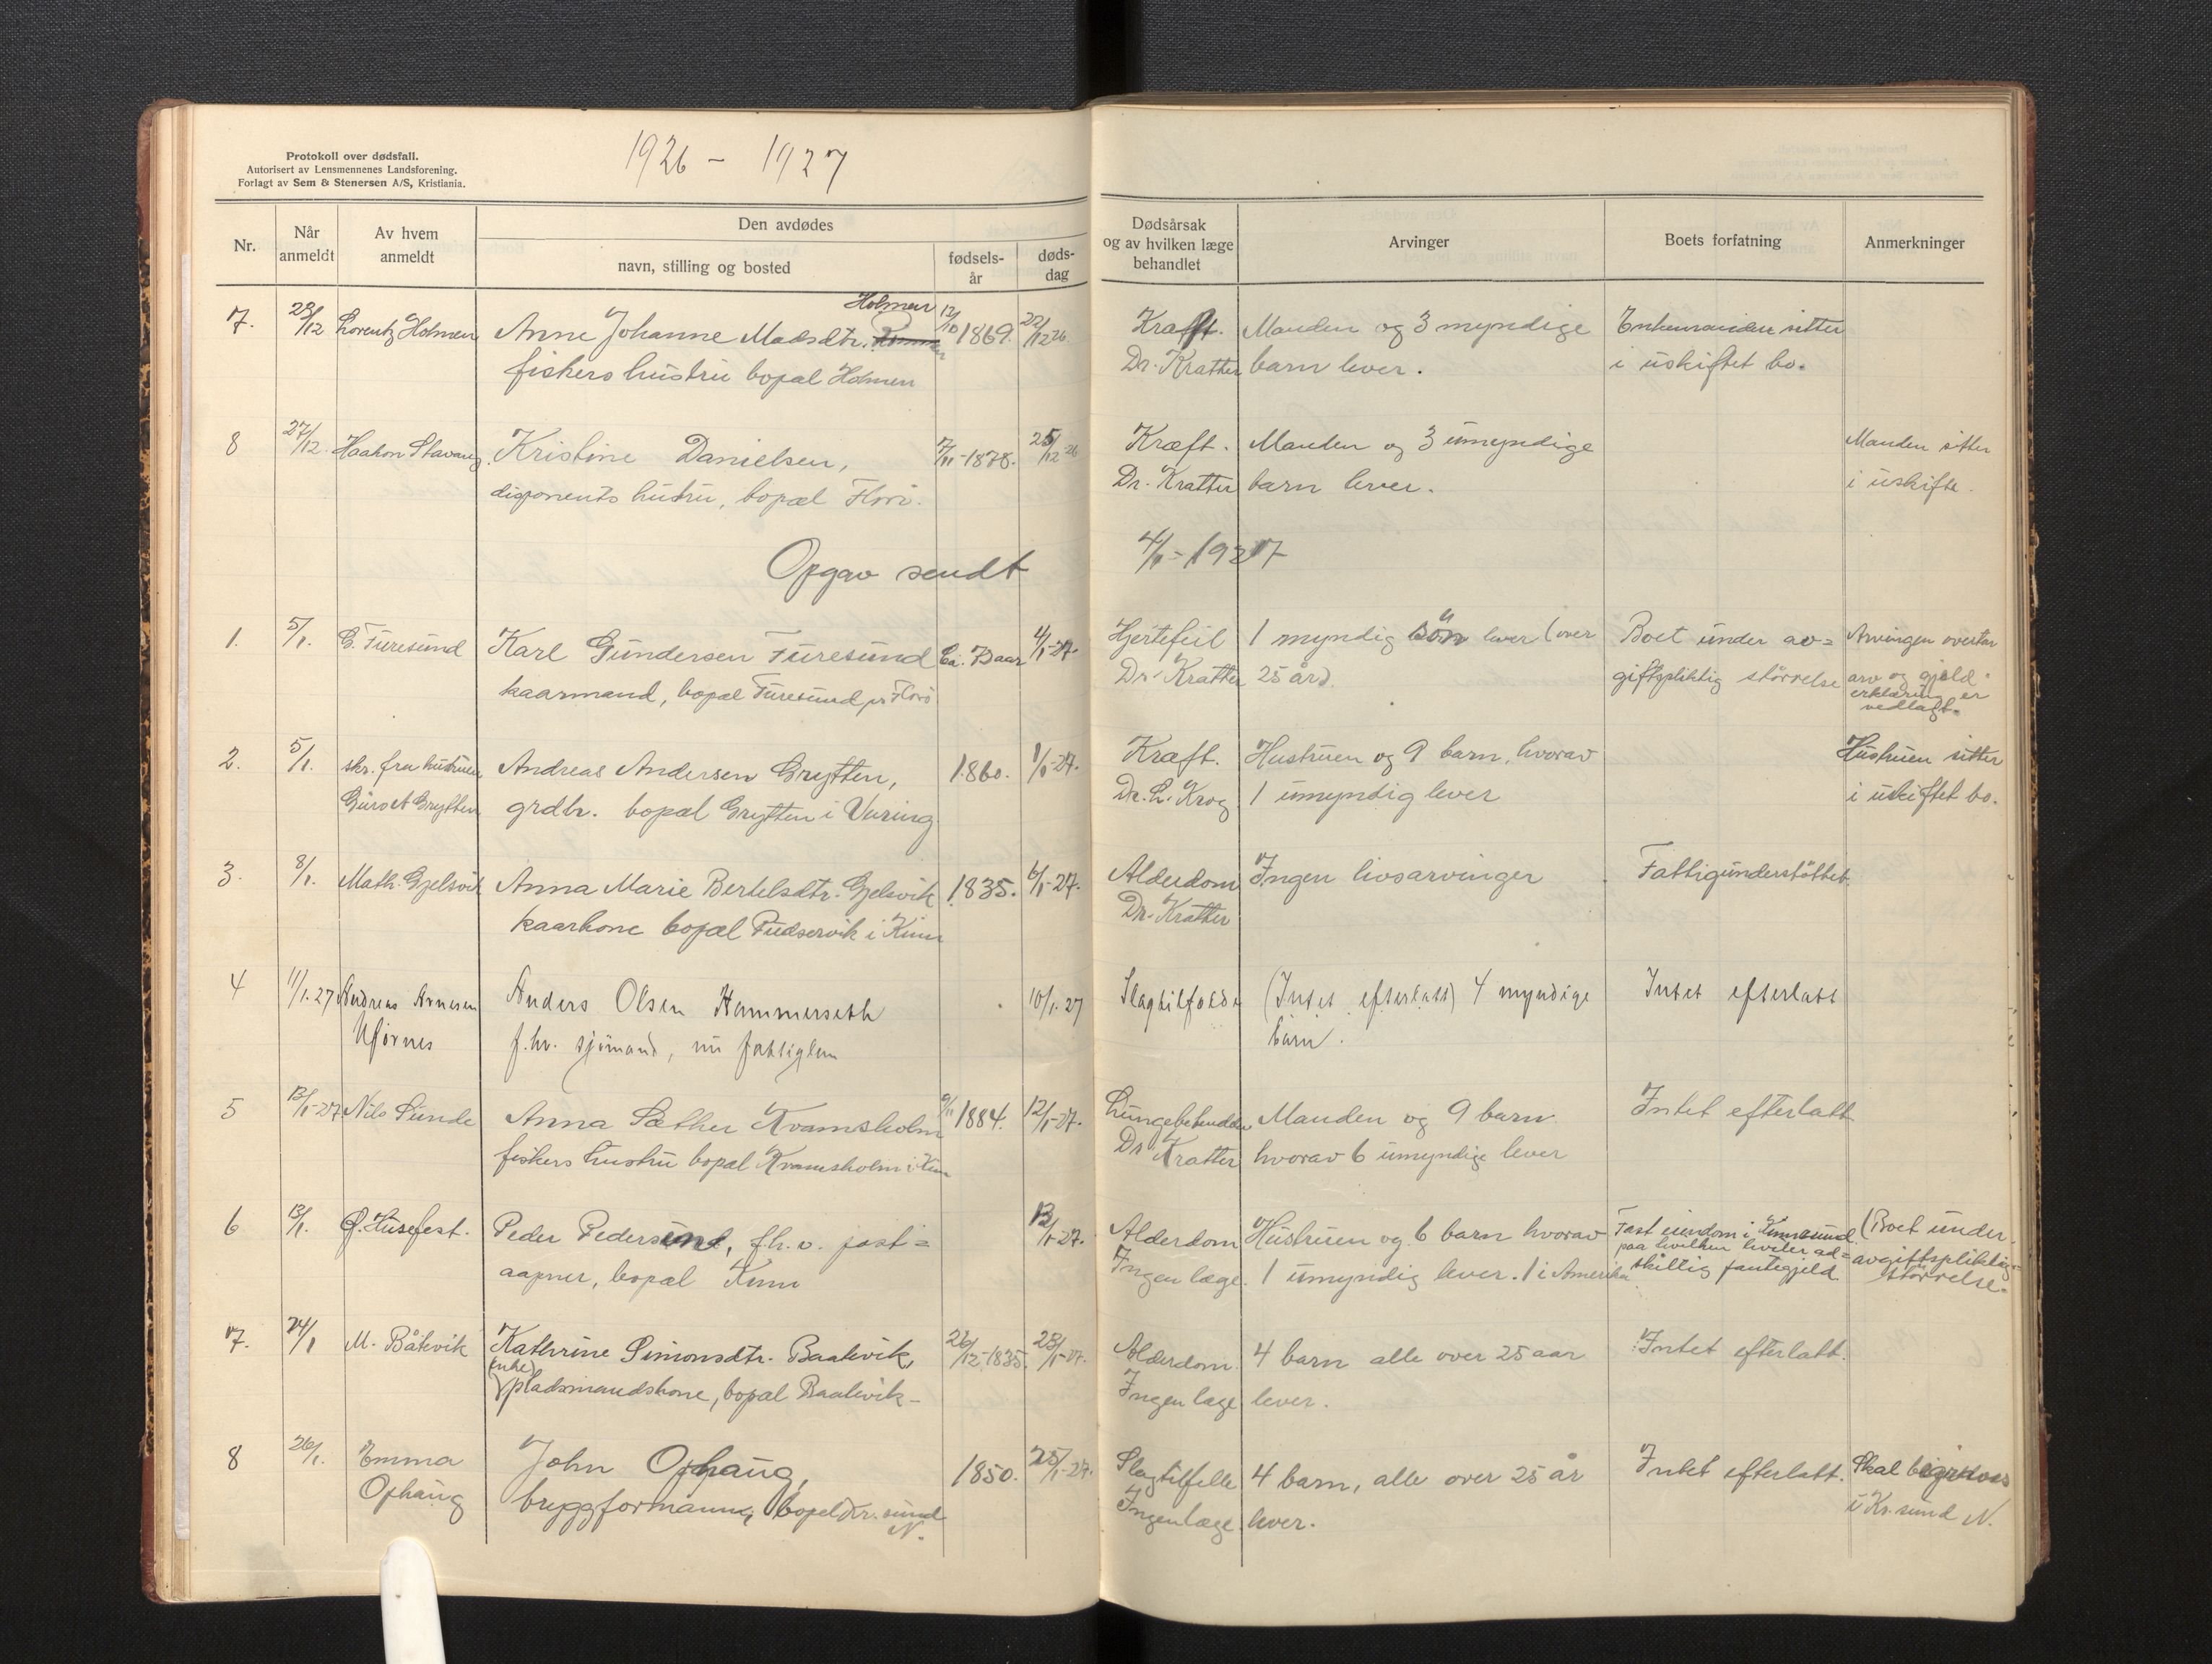 Protokoll over dødsfall.
Autorisert av Lensmennenes Landsforening.
Forlagt av Sem & Stenersen A/S, Kristiania.
1926 - 1927
Nr.
Når anmeldt
Av hvem anmeldt
Den avdødes
navn, stilling og bosted
fødselsår
dødsdag
Dødsårsak og av hvilken læge behandlet
Arvinger
Boets forfatning
Anmerkninger
7. 23/12 Lorentz Holmen Anne Johanne Madsdtr. Holmen 12/10 1869. 22/12 26 Kræft. Manden og 3 myndige Enkemanden sitter
fiskers hustru bopæl Holmen Dr. Kratter barn lever. i uskiftet bo.
8 27/12. Haakon Stavang. Kristine Danielsen, 7/11-1878. 25/12-26 Kræft. Manden og 3 umyndige Manden sitter
disponents hustru, bopæl Florø. Dr. Kratter barn lever. i uskifte.
Opgav sendt 4/1-1927
1. 5/1. G. Furesund Karl Gundersen Furesund Ca. 73 aar 4/1-27. Hjertefeil 1 myndig søn lever (over Boet under av= Arvingen overtar
kaarmand, bopæl Furesund pr Florø Dr. Kratter 25 år). giftspliktig størrelse arv og gjeld.
erklæring er
vedlagt.
2. 5/1. skr. fra hustruen Andreas Andersen Grytten, 1860. 1/1-27. Kræft. Hustruen og 9 barn, hvorav Hustruen sitter
Guroet Grytten grdbr. bopæl Grytten i Vering Dr. L. Krog 1 umyndig lever i uskiftet bo.
3. 8/1. Math. Gjelsvik Anna Marie Bertelsdtr. Gjelsvik 1835. 6/1-27. Alderdom Ingen livsarvinger Fattigunderstøttet.
kaarkone bopæl Pudservik i Kinn Dr. Kratter
4 11/1.27 Andreas Arnesen Anders Olsen Hammerseth 10/1.27 Slagtilfælde (Intet efterlatt) 4 myndige Intet efterlatt
Ufornes f.hv. sjømand, nu fattiglem barn.
5 13/1-27 Nils Sunde Anna Sæther Kvamsholm 9/11 1884. 12/1-27. Lungebetendelse Manden og 9 barn Intet efterlatt
fiskers hustru bopæl Kvamsholm i Kinn Dr Kratter hvorav 6 umyndige lever
6 13/1. Husefest. Peder Pedersen, f.h.v. post= 12/1-27. Alderdom Hustruen og 6 barn hvorav Fast eiendom i Kinnsund (Boet under
aapner, bopæl Kinn Ingen læge. 1 umyndig lever. 1 i Amerika paa hvilken hviler ad= avgiftspliktig
skillig pantegjeld størrelse.
7. 24/1 M. Båtevik Kathrine Simonsdtr. Baatevik, 26/12-1835. 23/1-27. Alderdom. 4 barn alle over 25 aar Intet efterlatt.
(enke) pladsmandskone, bopæl Baatevik- Ingen læge lever.
8 26/1. Emma John Ophaug, 1850. 25/1-27. Slagtilfelle 4 barn, alle over 25 år Intet efterlatt. Skal begraves
Ophaug bryggformann, bopel Kr. sund N. Ingen læge. lever. i Kr. sund N.